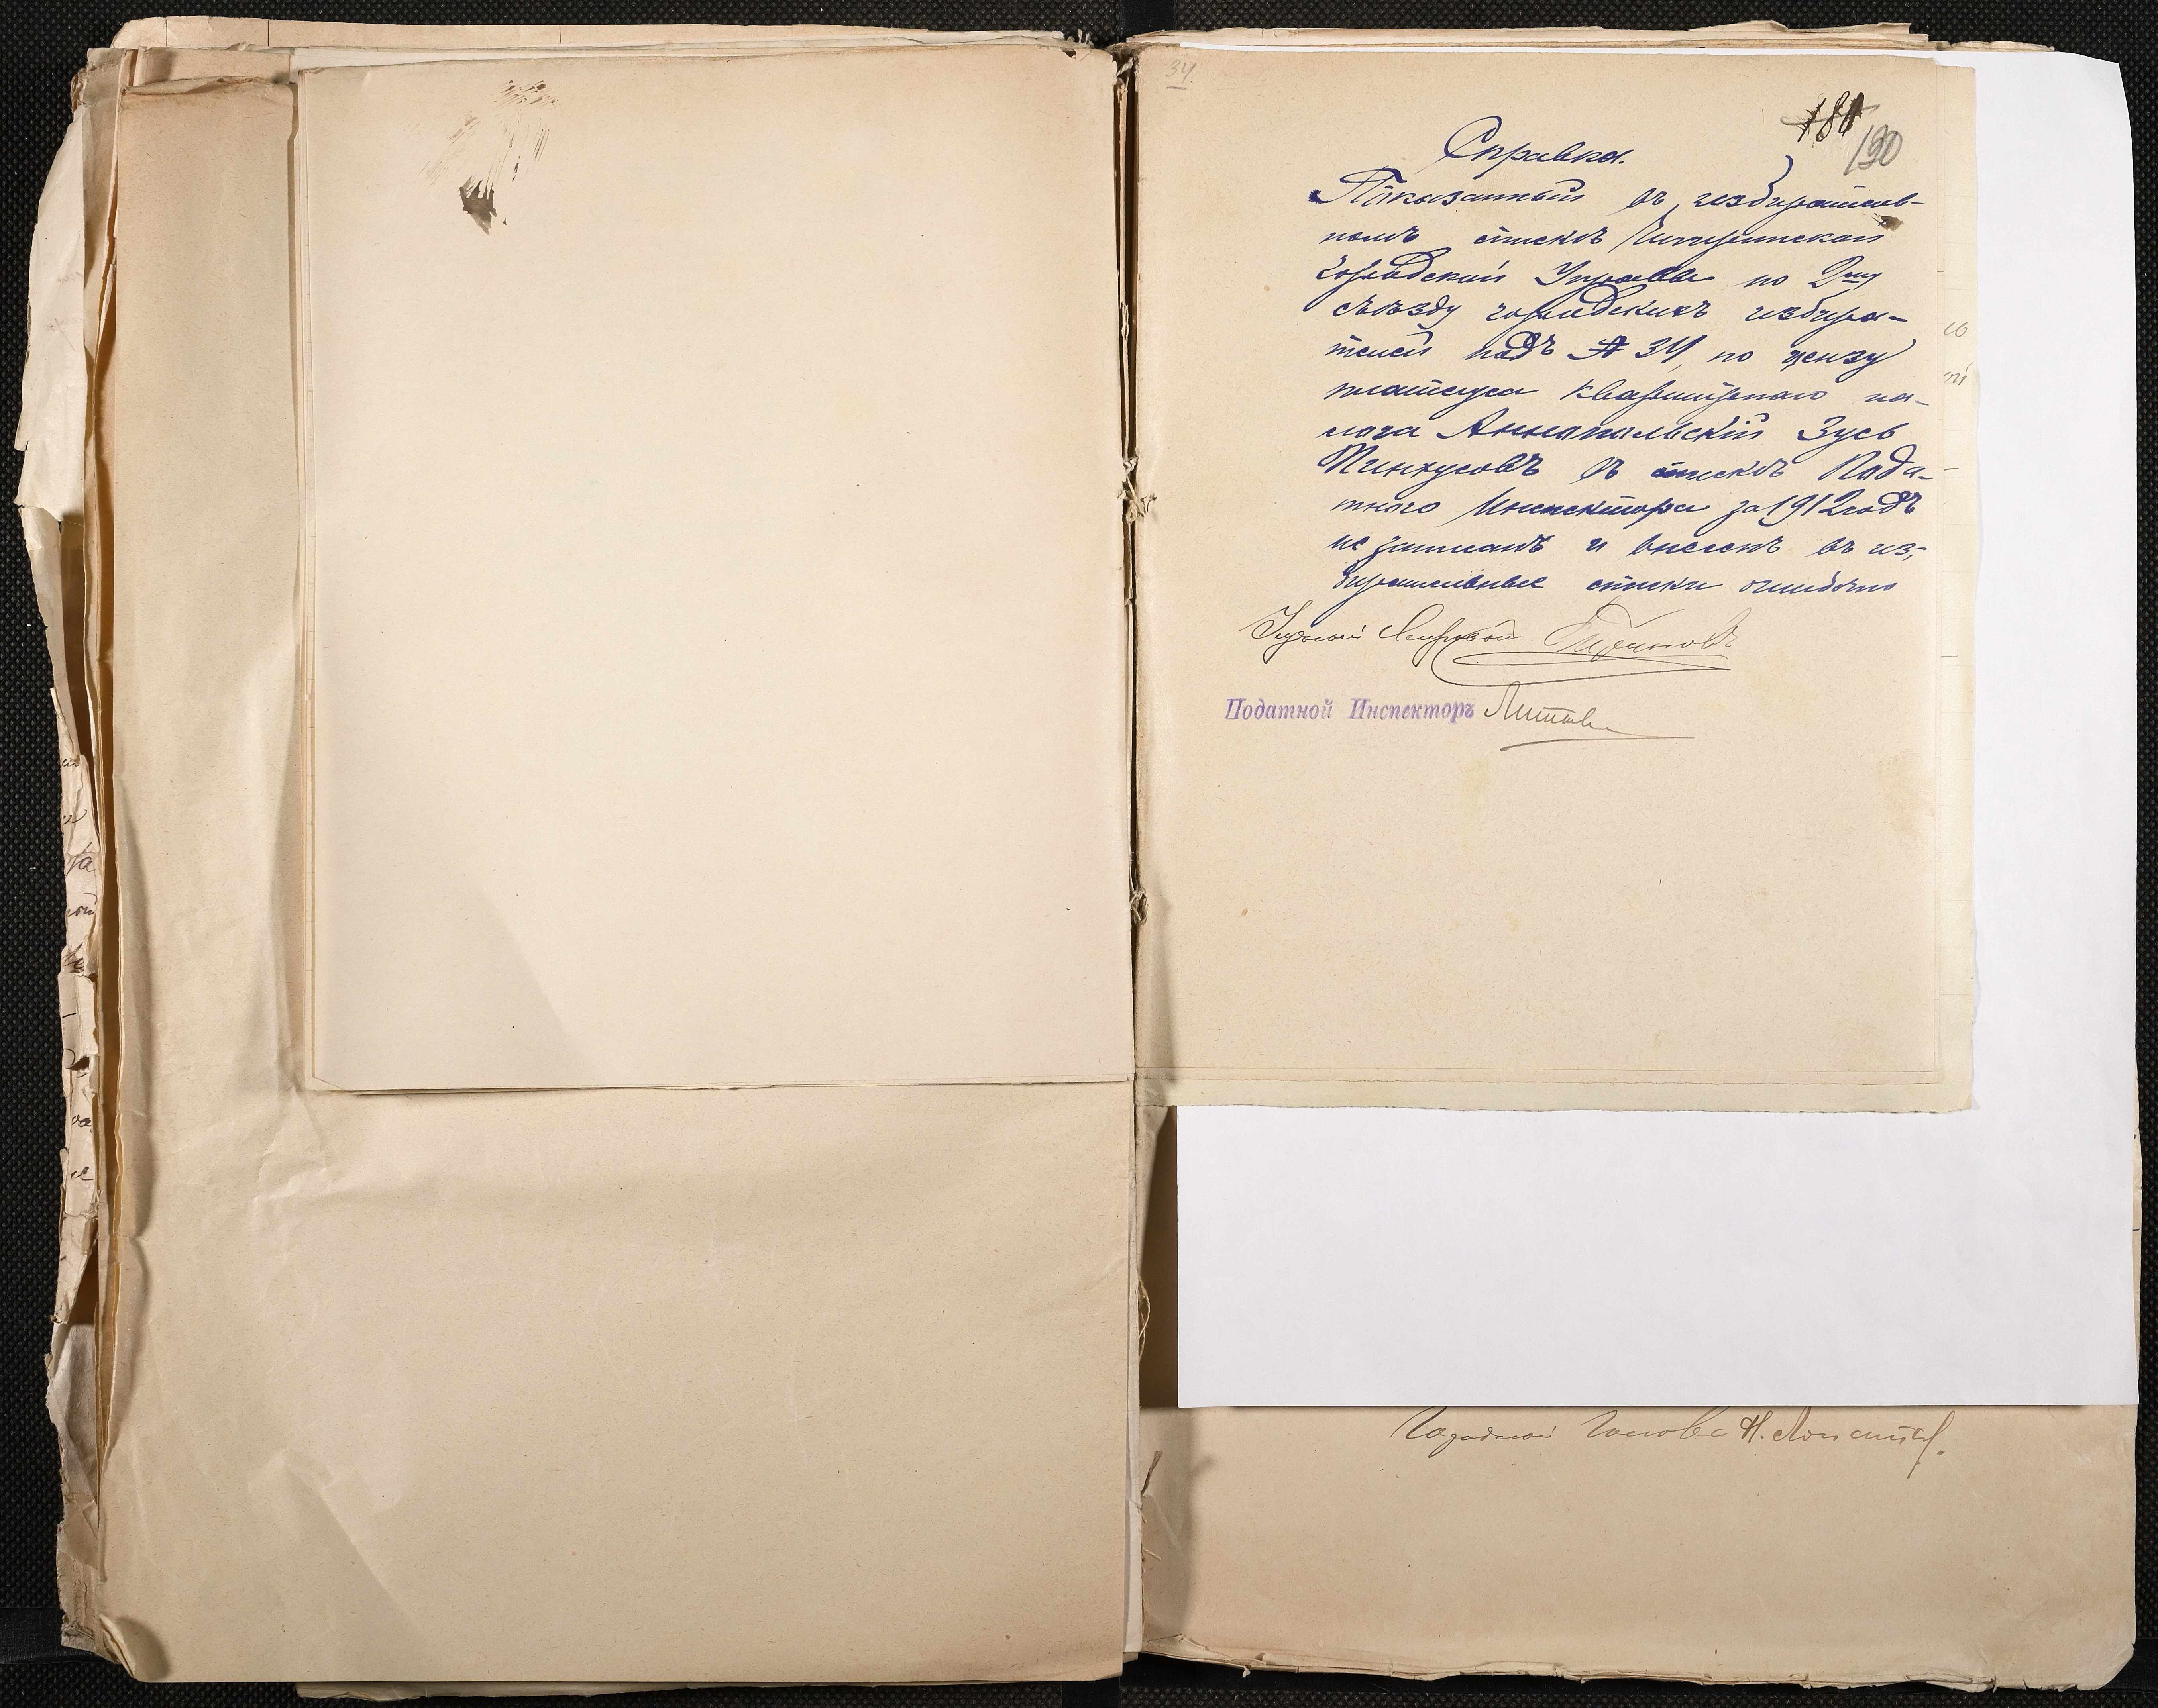 34.
181
190
Справка.
Показанный въ избиратель-
номъ спискѣ Чигиринской
Городской Управы по 2му
съѣзду городскихъ избира-
телей подъ № 34, по цензу
плательщ квартирнаго на-
лога Аннапольскій Зусь
Пинкусовъ въ спискѣ Пода-
тного Инспектора за 1912 годъ
не записанъ и внесенъ въ из-
бирательные списки ошибочно
Податной Инспекторъ
Городской Голова Н.